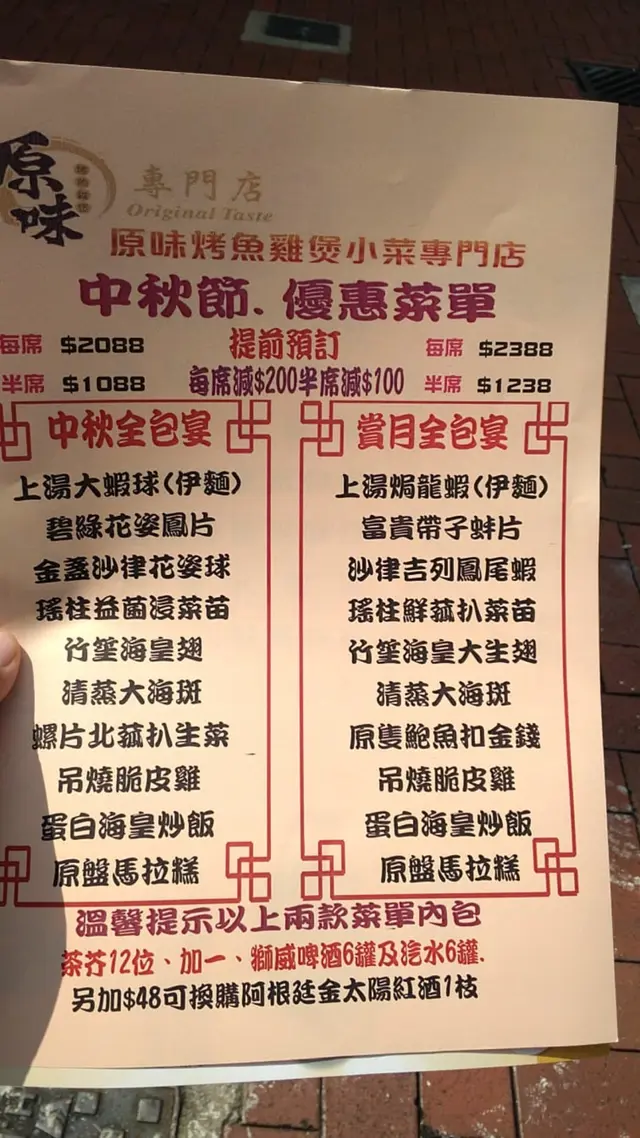 原味
專門店
Original Taste
原味烤魚雞煲小菜專門店
中秋節．優惠菜單
每席 $2088
提前預訂
每席 $2388
半席 $1088
每席減$200半席減$100
半席 $1238
中秋全包宴
上湯大蝦球(伊麵)
碧綠花姿鳳片
金盞沙律花姿球
瑤柱益菌浸菜苗
竹笙海皇翅
清蒸大海斑
螺片北菰扒生菜
吊燒脆皮雞
蛋白海皇炒飯
原盤馬拉糕
賞月全包宴
上湯焗龍蝦(伊麵)
富貴帶子蚌片
沙律吉列鳳尾蝦
瑤柱鮮菰扒菜苗
竹笙海皇大生翅
清蒸大海斑
原隻鮑魚扣金錢
吊燒脆皮雞
蛋白海皇炒飯
原盤馬拉糕
溫馨提示以上兩款菜單內包
茶芥12位、加一、獅威啤酒6罐及汽水6罐.
另加$48可換購阿根廷金太陽紅酒1枝